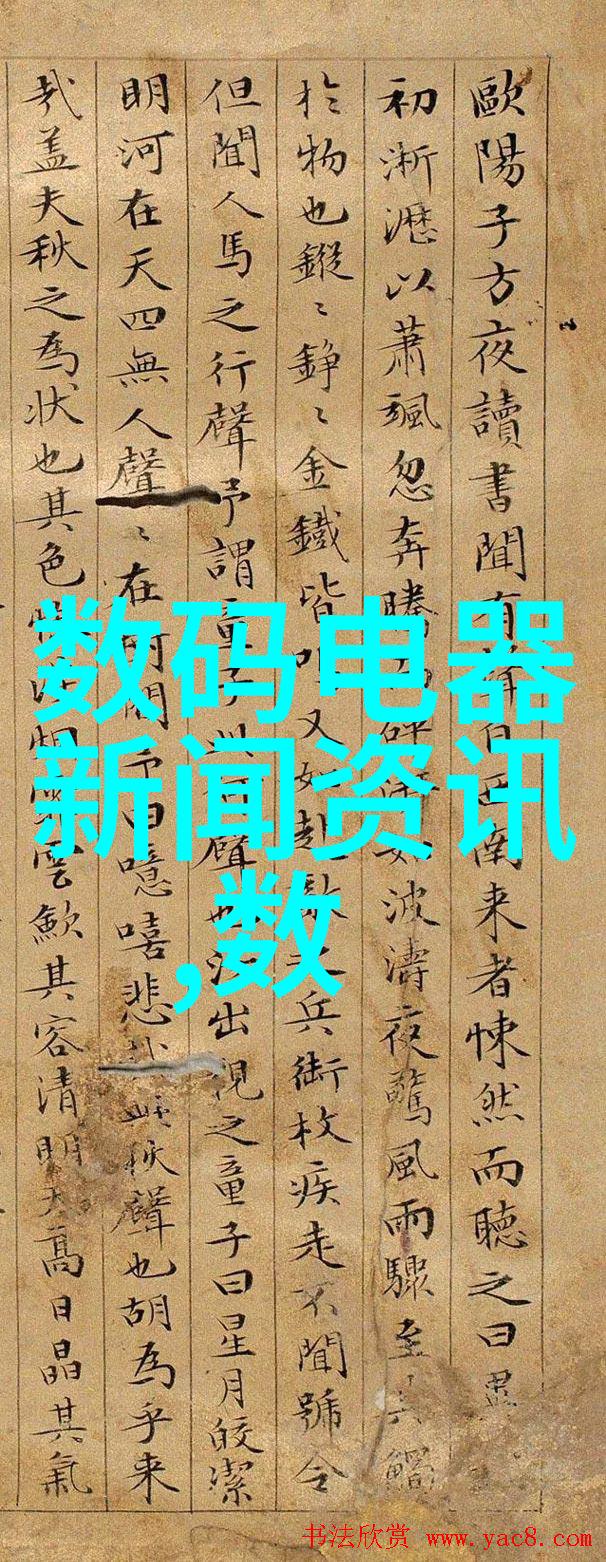 歐陽子方夜讀書聞有聲自西南来者悚然而聽之曰異
初淅瀝以蕭颯忽奔騰而砰湃如波濤夜驚風雨驟至其觸
於物也鏦〻錚〻金鐵皆鳴又如赴敵之兵銜枚疾走不聞號令
但聞人馬之行聲予謂童子此何聲也汝出視之童子曰星月皎潔
明河在天四無人聲〻在樹間予曰噫嘻悲哉此秋聲也胡為乎来
哉盖夫秋之為狀也其色慘淡烟霏雲歛其容清明天高日晶其氣
数码电器
新闻资讯
,数
书法欣赏 www.yac8.com